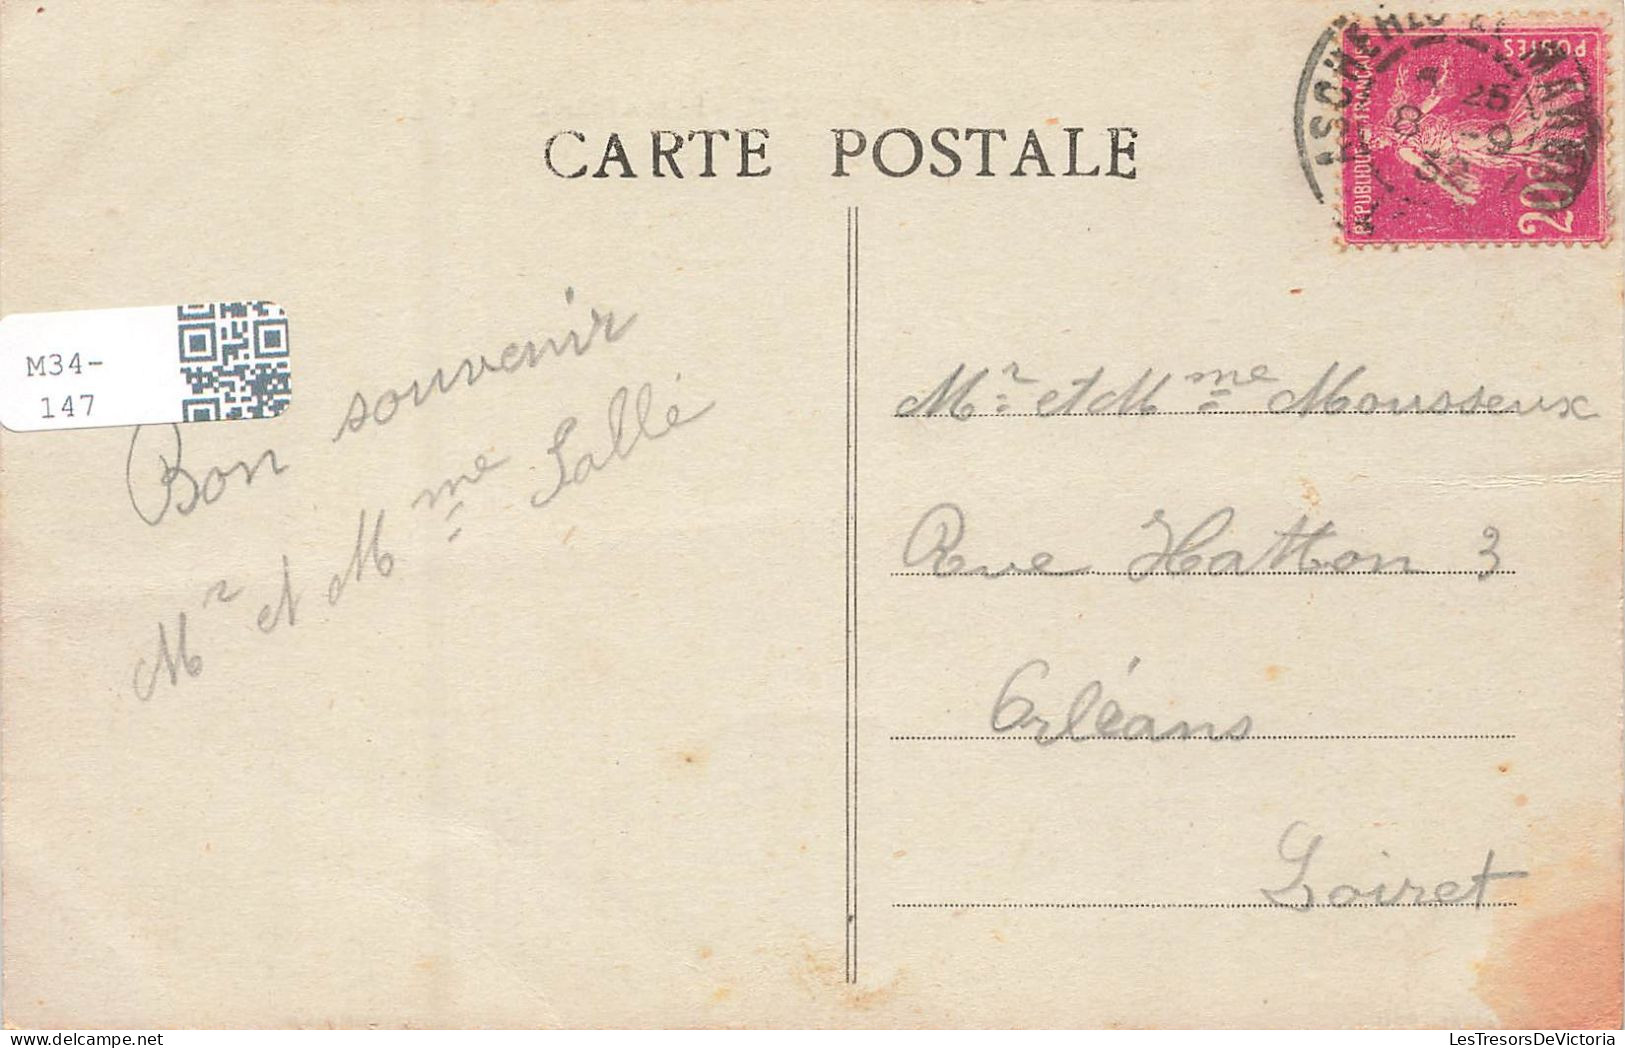 CARTE POSTALE
ASCHÈRES LE MARCHÉ
8 25
-9
32
POSTES
REPUBLIQUE FRANÇAISE
20c
M34-
147
Bon souvenir
Mr et Mme Sallé
Mr et Mme Mousseux
Rue Hatton 3
Orléans
Loiret
LesTresorsDeVictoria